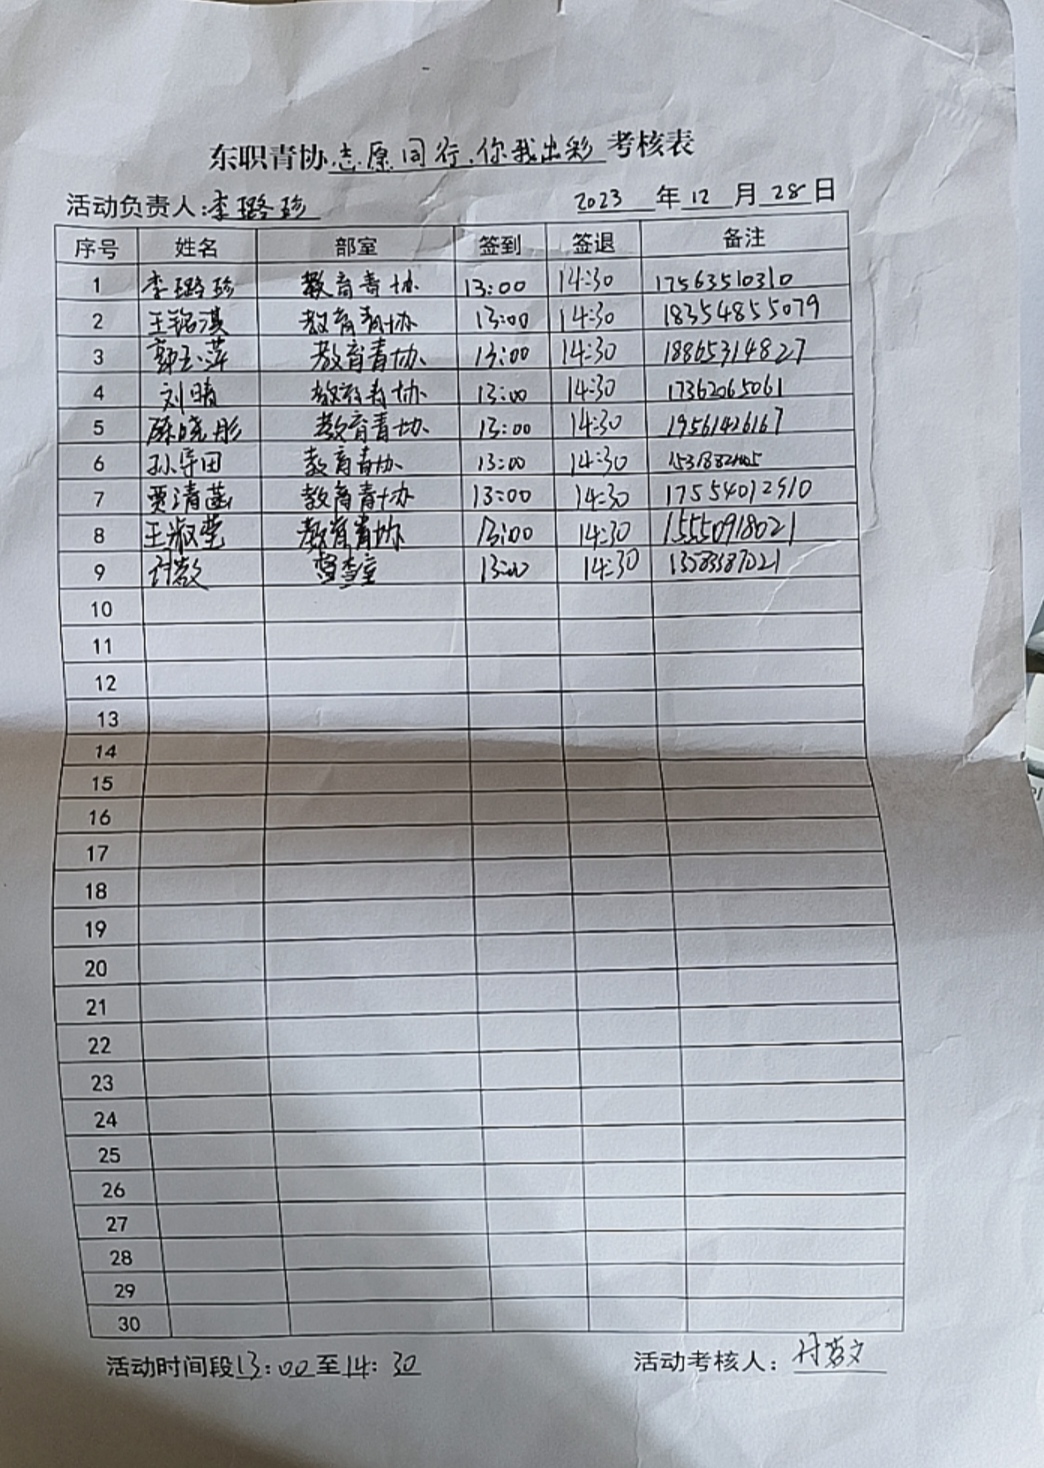 东职青协 志愿同行,你我出彩 考核表
活动负责人:李璐珍 2023 年 12 月 28 日
序号 姓名 部室 签到 签退 备注
1 李璐珍 教育青协 13:00 14:30 17563510310
2 王铭淇 教育青协 13:00 14:30 18354855079
3 郭玉萍 教育青协 13:00 14:30 18865314827
4 刘晴 教育青协 13:00 14:30 17362065061
5 陈晓彤 教育青协 13:00 14:30 19561426167
6 教育青协 13:00 14:30
7 贾清菡 教育青协 13:00 14:30 17554012910
8 王淑莹 教育青协 13:00 14:30 15550918021
9 督查室 13:00 14:30 13583587021
10
11
12
13
14
15
16
17
18
19
20
21
22
23
24
25
26
27
28
29
30
活动时间段13:00至14:30 活动考核人: